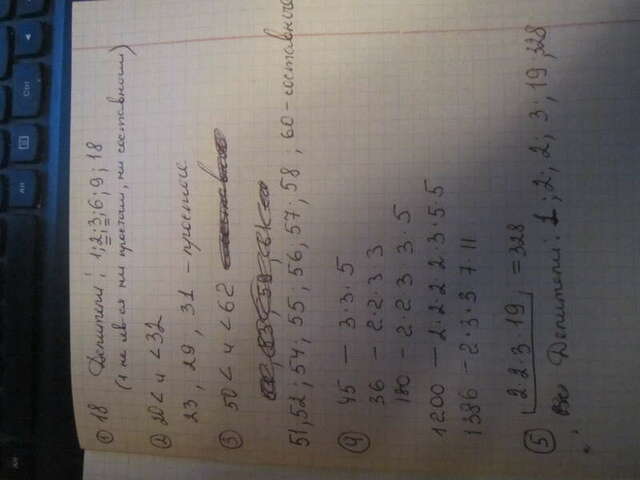 ① 18 Делители: 1; 2; 3; 6; 9; 18
(1 не яв-ся ни простым, ни составным)
② 20 < ч < 32
23, 29, 31 - простые
③ 50 < ч < 62
51, 52; 54; 55; 56, 57; 58; 60 - составные
④ 45 — 3·3·5
36 — 2·2·3 3
180 — 2·2 3 3·5
1200 — 2·2·2 2·3·5·5
1386 — 2·3·3 7·11
⑤ 2·2·3·19 = 328
Делители: 1; 2; 2; 3; 19; 328